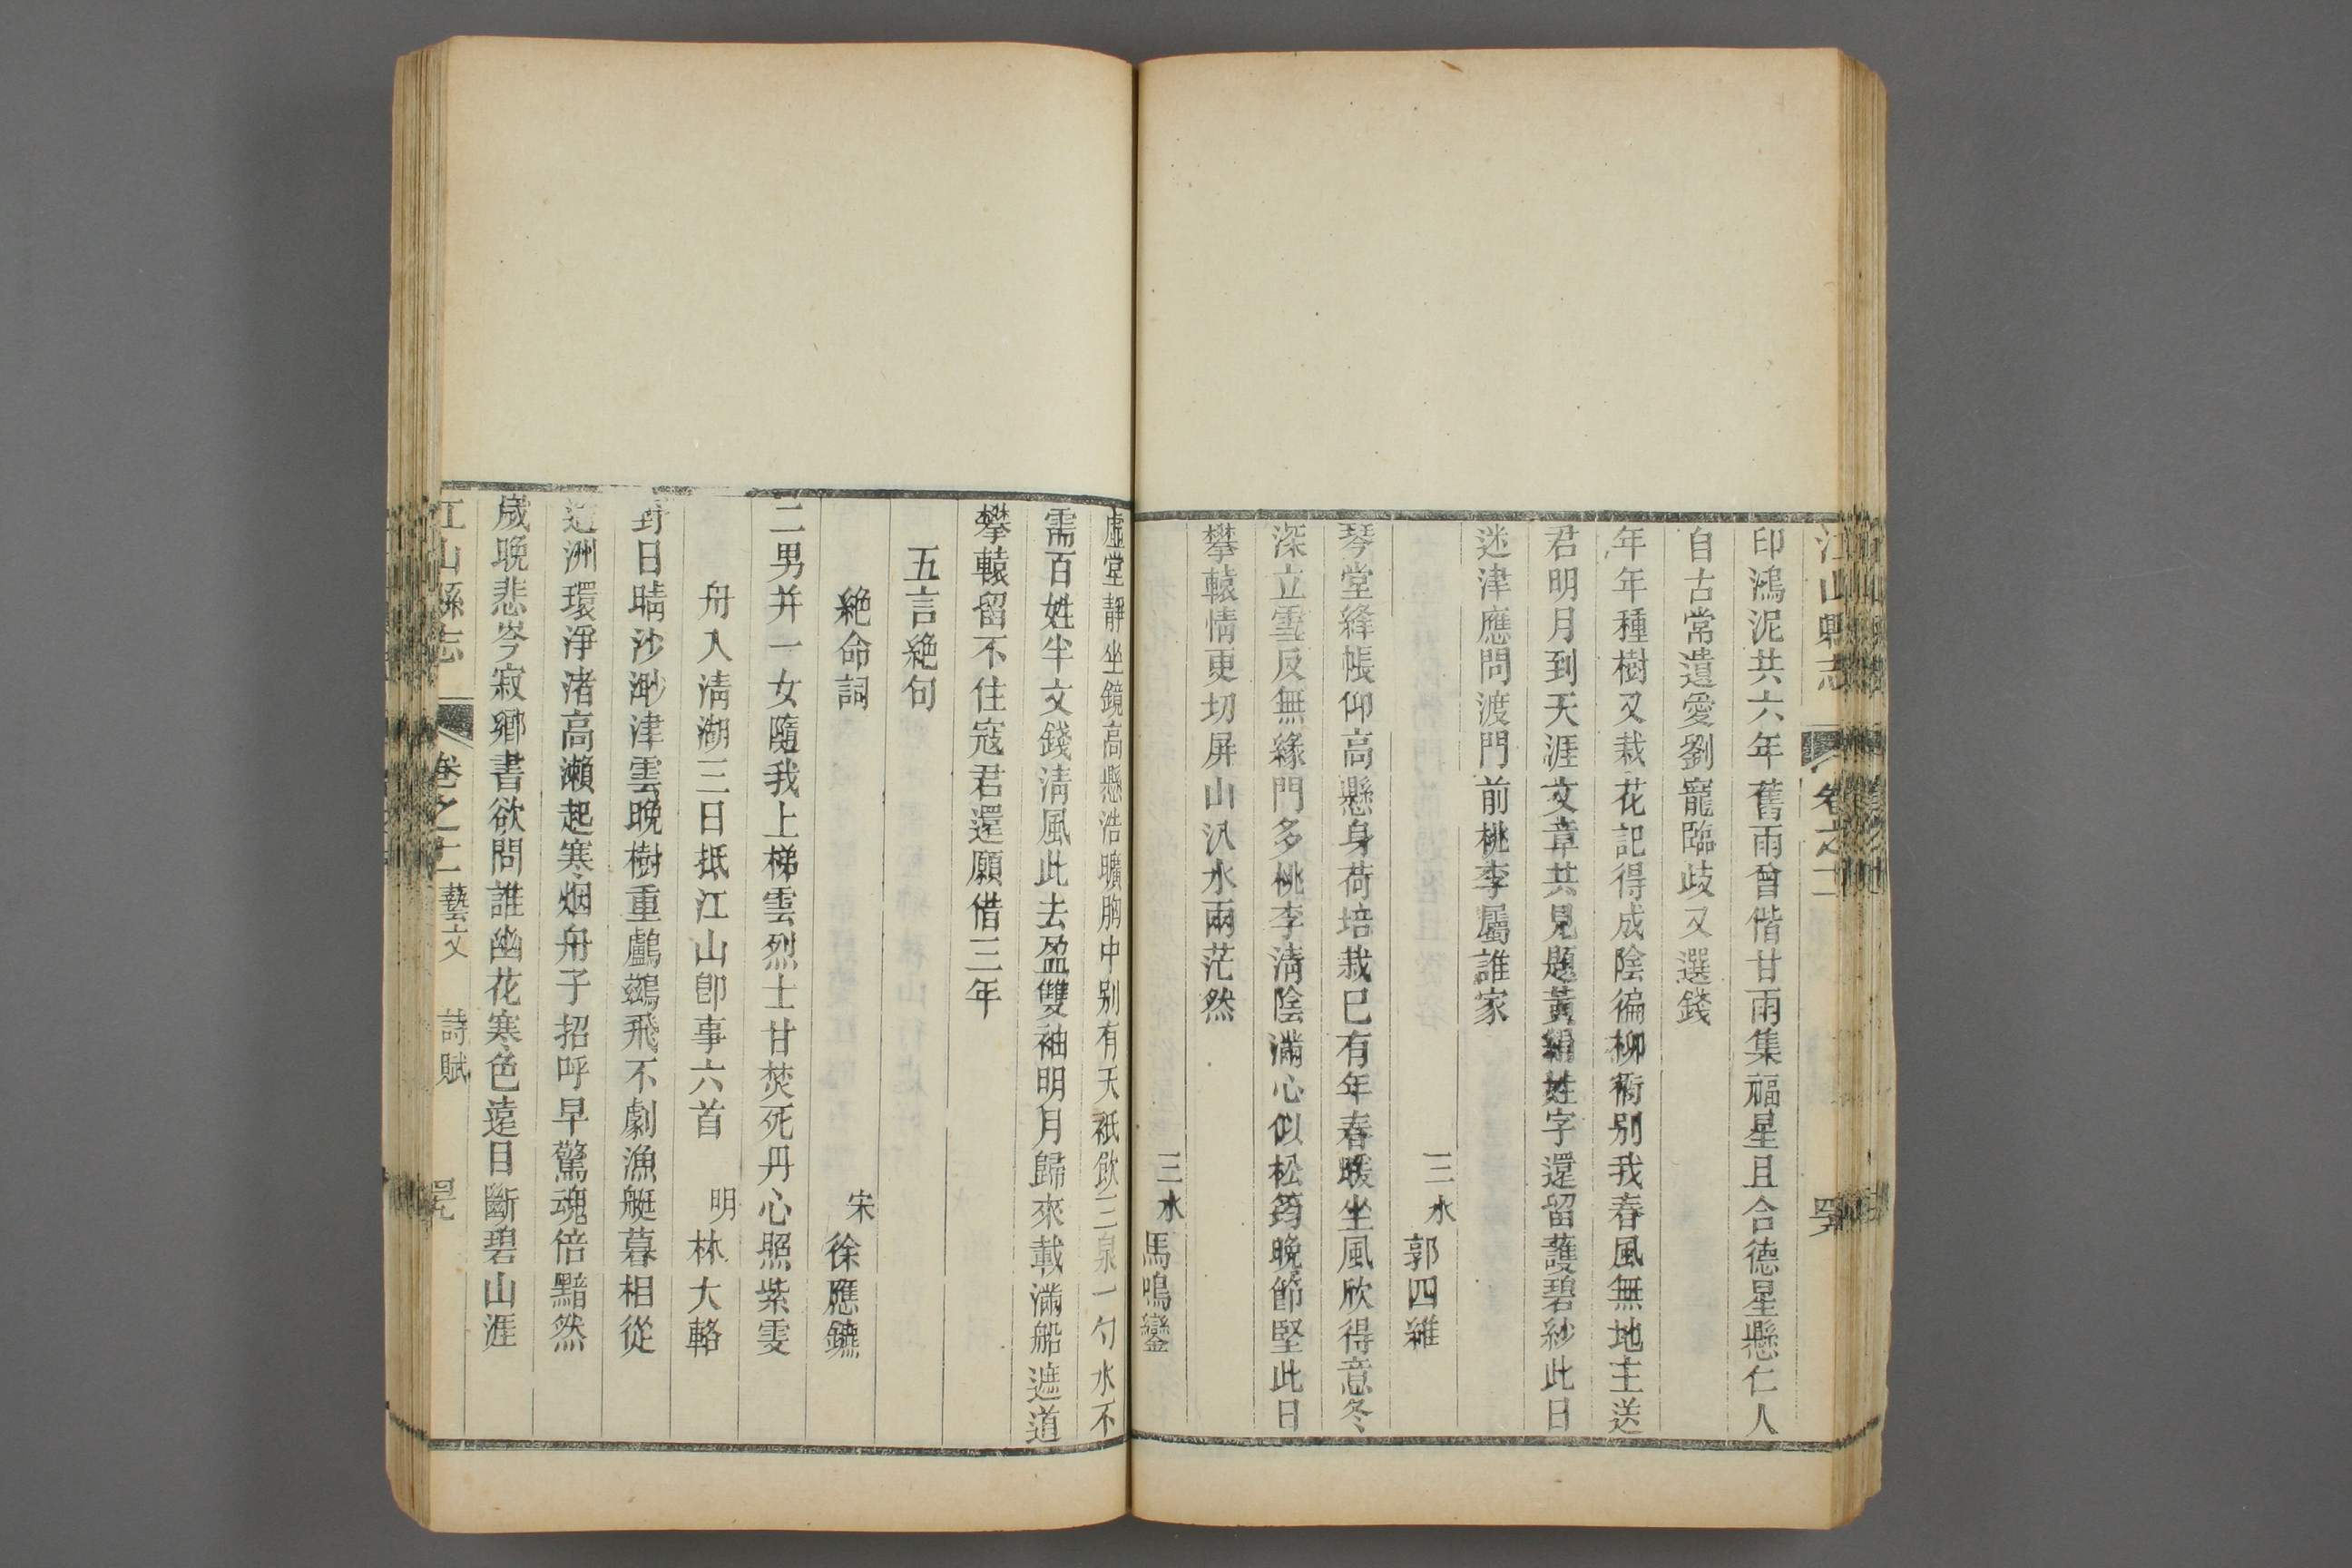 江山縣志 卷之十二
印鴻泥共六年舊雨曾偕甘雨集福星且合德星懸仁人
自古常遺愛劉寵臨歧又選錢
年年種樹又栽花記得成陰徧柳衙别我春風無地主送
君明月到天涯文章共見題黃絹姓字還留護碧紗此日
迷津應問渡門前桃李屬誰家
三水 郭四維
琴堂絳帳仰高懸身荷培栽已有年春暖坐風欣得意冬
深立雪反無緣門多桃李淸陰滿心似松筠晚節堅此日
攀轅情更切屏山汃水兩茫然
三水 馬鳴鑾
虛堂靜坐鏡高懸浩曠胸中别有天祇飮三泉一勺水不
需百姓半文錢淸風此去盈雙袖明月歸來載滿船遮道
攀轅留不住寇君還願借三年
五言絶句
絶命詞 宋 徐應鑣
二男并一女隨我上梯雲烈士甘焚死丹心照紫雯
舟入淸湖三日抵江山卽事六首 明 林大輅
對日晴沙渺津雲晚樹重鸕鷀飛不劇漁艇暮相從
洲環淨渚高瀨起寒烟舟子招呼早驚魂倍黯然
歲晚悲岑寂鄉書欲問誰幽花寒色遠目斷碧山涯
江山縣志 卷之十二 藝文 詩賦